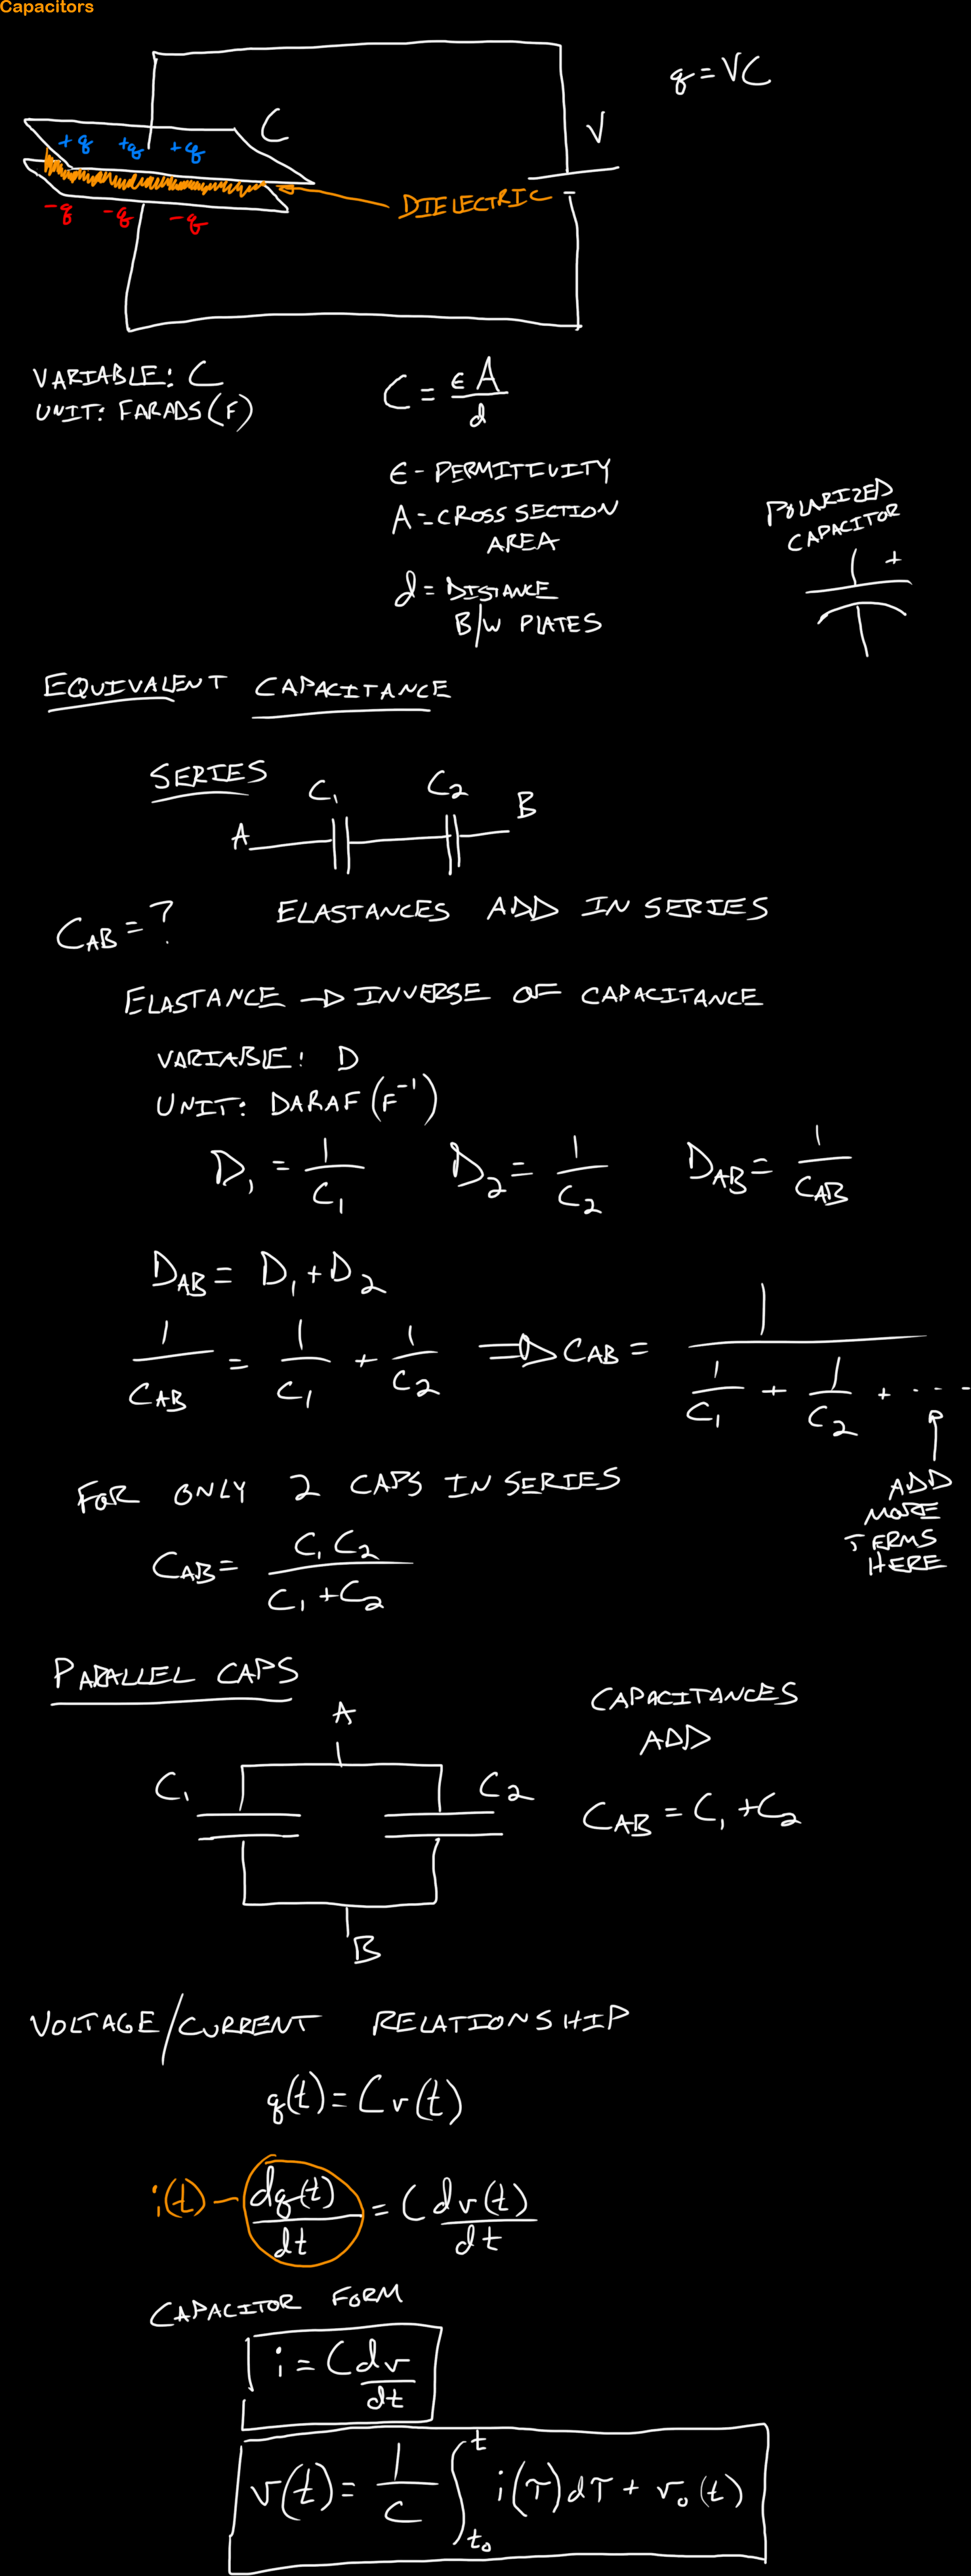 Capacitors
q = VC
C
V
+q +q +q
DIELECTRIC
-q -q -q
VARIABLE: C
UNIT: FARADS (F)
C = εA/d
ε - PERMITTIVITY
A = CROSS SECTION
AREA
d = DISTANCE
B/W PLATES
POLARIZED
CAPACITOR
+
EQUIVALENT CAPACITANCE
SERIES
C₁ C₂
A B
C_AB = ?
ELASTANCES ADD IN SERIES
ELASTANCE → INVERSE OF CAPACITANCE
VARIABLE: D
UNIT: DARAF (F⁻¹)
D₁ = 1/C₁ D₂ = 1/C₂ D_AB = 1/C_AB
D_AB = D₁ + D₂
1/C_AB = 1/C₁ + 1/C₂ ⇒ C_AB = 1/(1/C₁ + 1/C₂ + ...)
ADD
MORE
TERMS
HERE
FOR ONLY 2 CAPS IN SERIES
C_AB = C₁C₂/(C₁ + C₂)
PARALLEL CAPS
A
C₁ C₂
B
CAPACITANCES
ADD
C_AB = C₁ + C₂
VOLTAGE/CURRENT RELATIONSHIP
q(t) = C v(t)
i(t) - dq(t)/dt = C dv(t)/dt
CAPACITOR FORM
i = C dv/dt
v(t) = 1/C ∫_{t₀}^{t} i(τ)dτ + v₀(t)